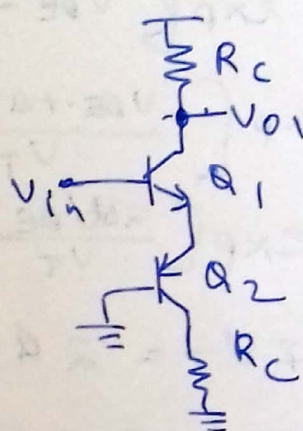 RC
VO
Vin
Q1
Q2
RC